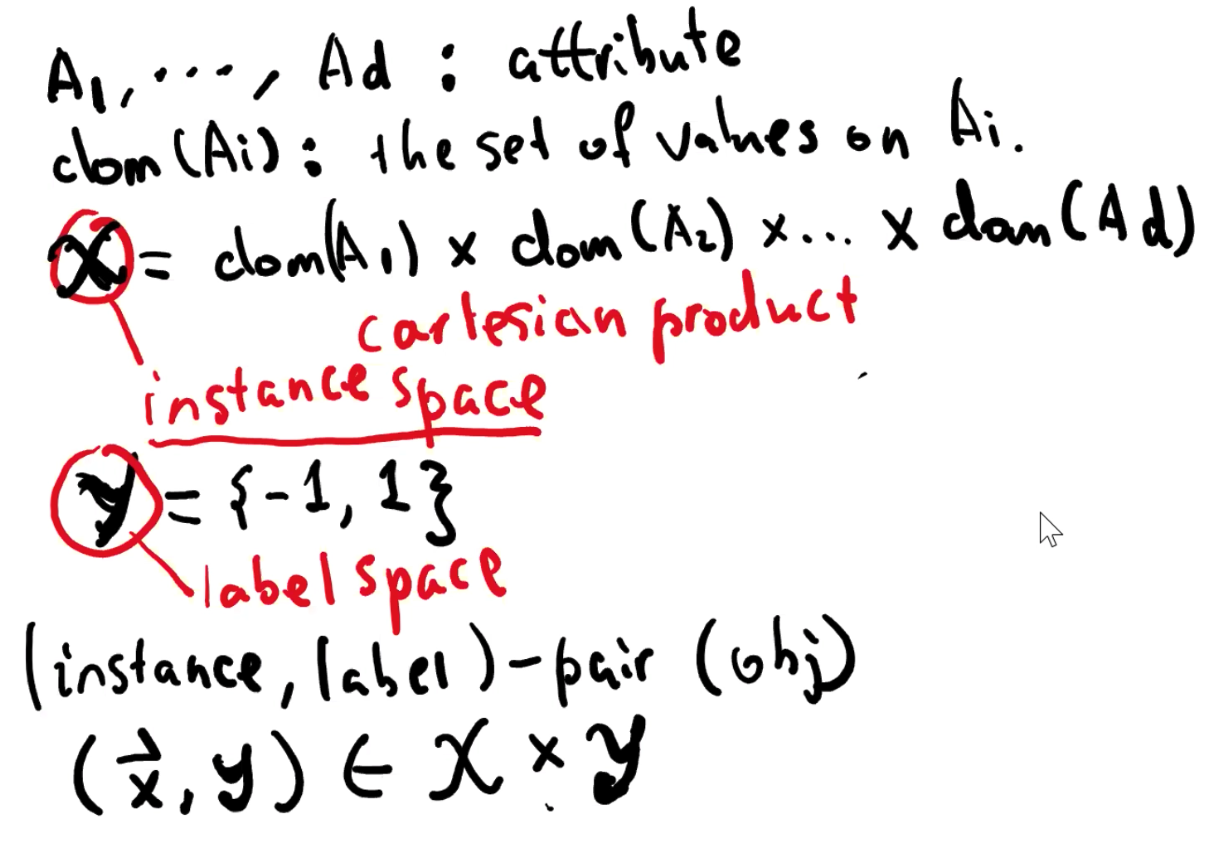 A₁, ..., Ad : attribute
dom(Ai) : the set of values on Ai.
X = dom(A₁) × dom(A₂) ×... × dom(Ad)
cartesian product
instance space
y = {-1, 1}
label space
(instance, label)-pair (obj)
(x⃗, y) ∈ X × y